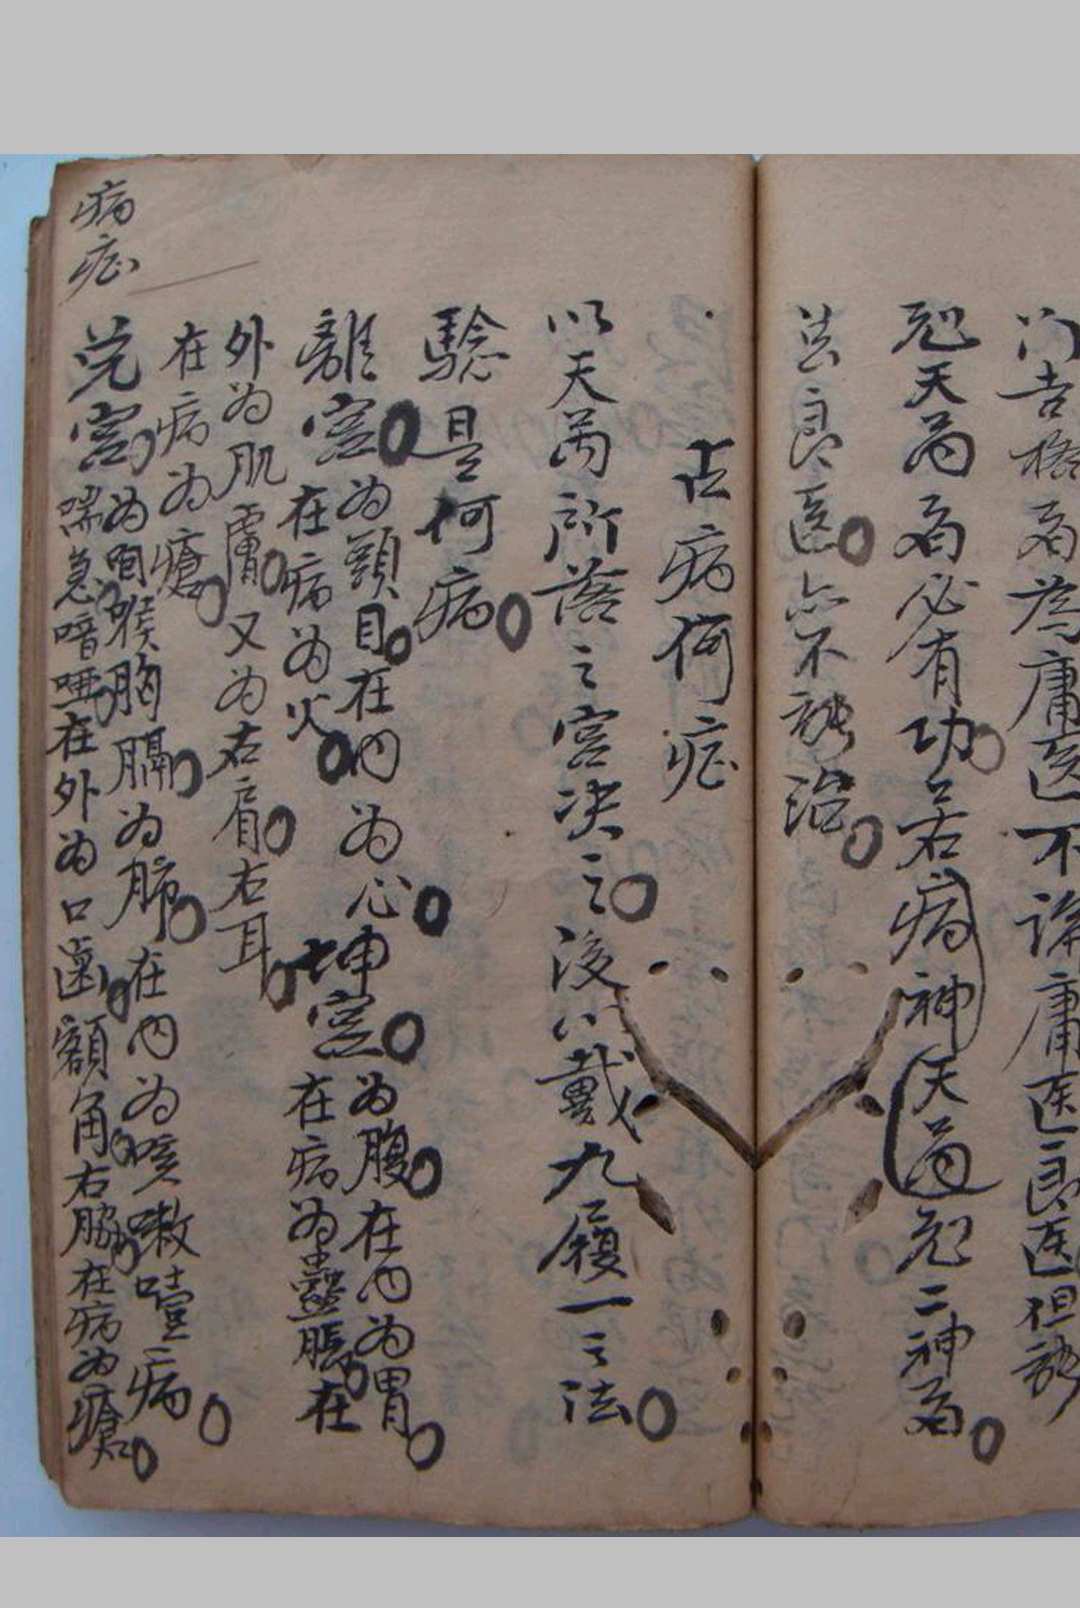 门吉格者為庸医不論庸医良医但能
尅天芮者必有功若病神天芮尅二神者
法良医亦不能治
占病何症
以天芮所落之宫决之後以戴九履一之法
驗是何病
離宫为頭目在内为心
在病为火
坤宫为腹在内为胃
在病为蠱脹在
外为肌膚又为右肩右耳
在病为瘡
病症
兑宫为咽喉胸膈为肺在内为咳嗽噎病
喘急喑啞在外为口齒額角右脇在病为瘡